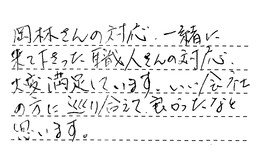 岡林さんの対応、一緒に
来て下さった職人さんの対応
大変満足しています。いい会社
の方に巡り合えて良かったなと
思います。